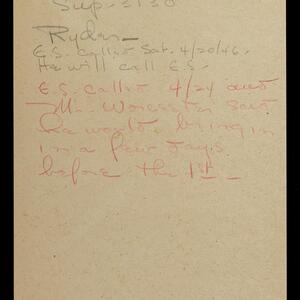 Sup - 2130
Ryder -
E.S. called Sat. 4/20/46.
He will call E.S.
E.S. called 4/24 and
Mr. Worcester said
he would bring in
in a few days
before the 1st -